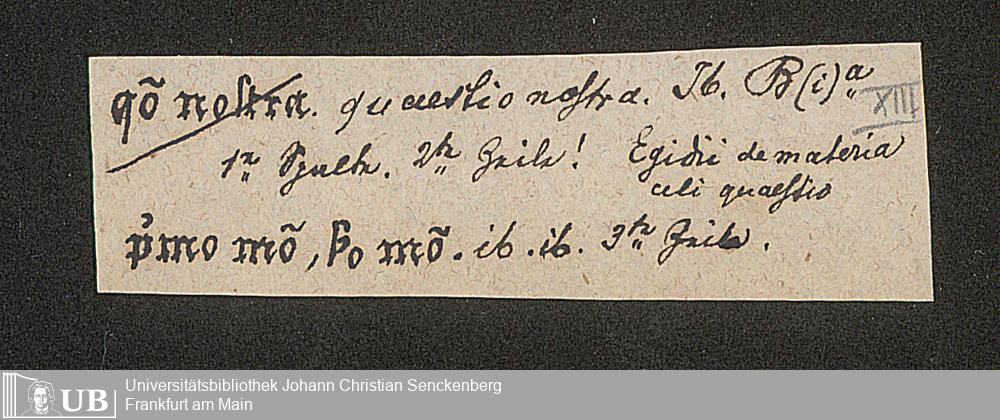 qõ nostra. quaestio nostra. Ib. B(i)a XIII
1te Spalte. 2te Zeile! Egidii de materia
celi quaestio
p̓mo mõ, ẜo mõ. ib. ib. 3te Zeile.
UB Universitätsbibliothek Johann Christian Senckenberg
Frankfurt am Main